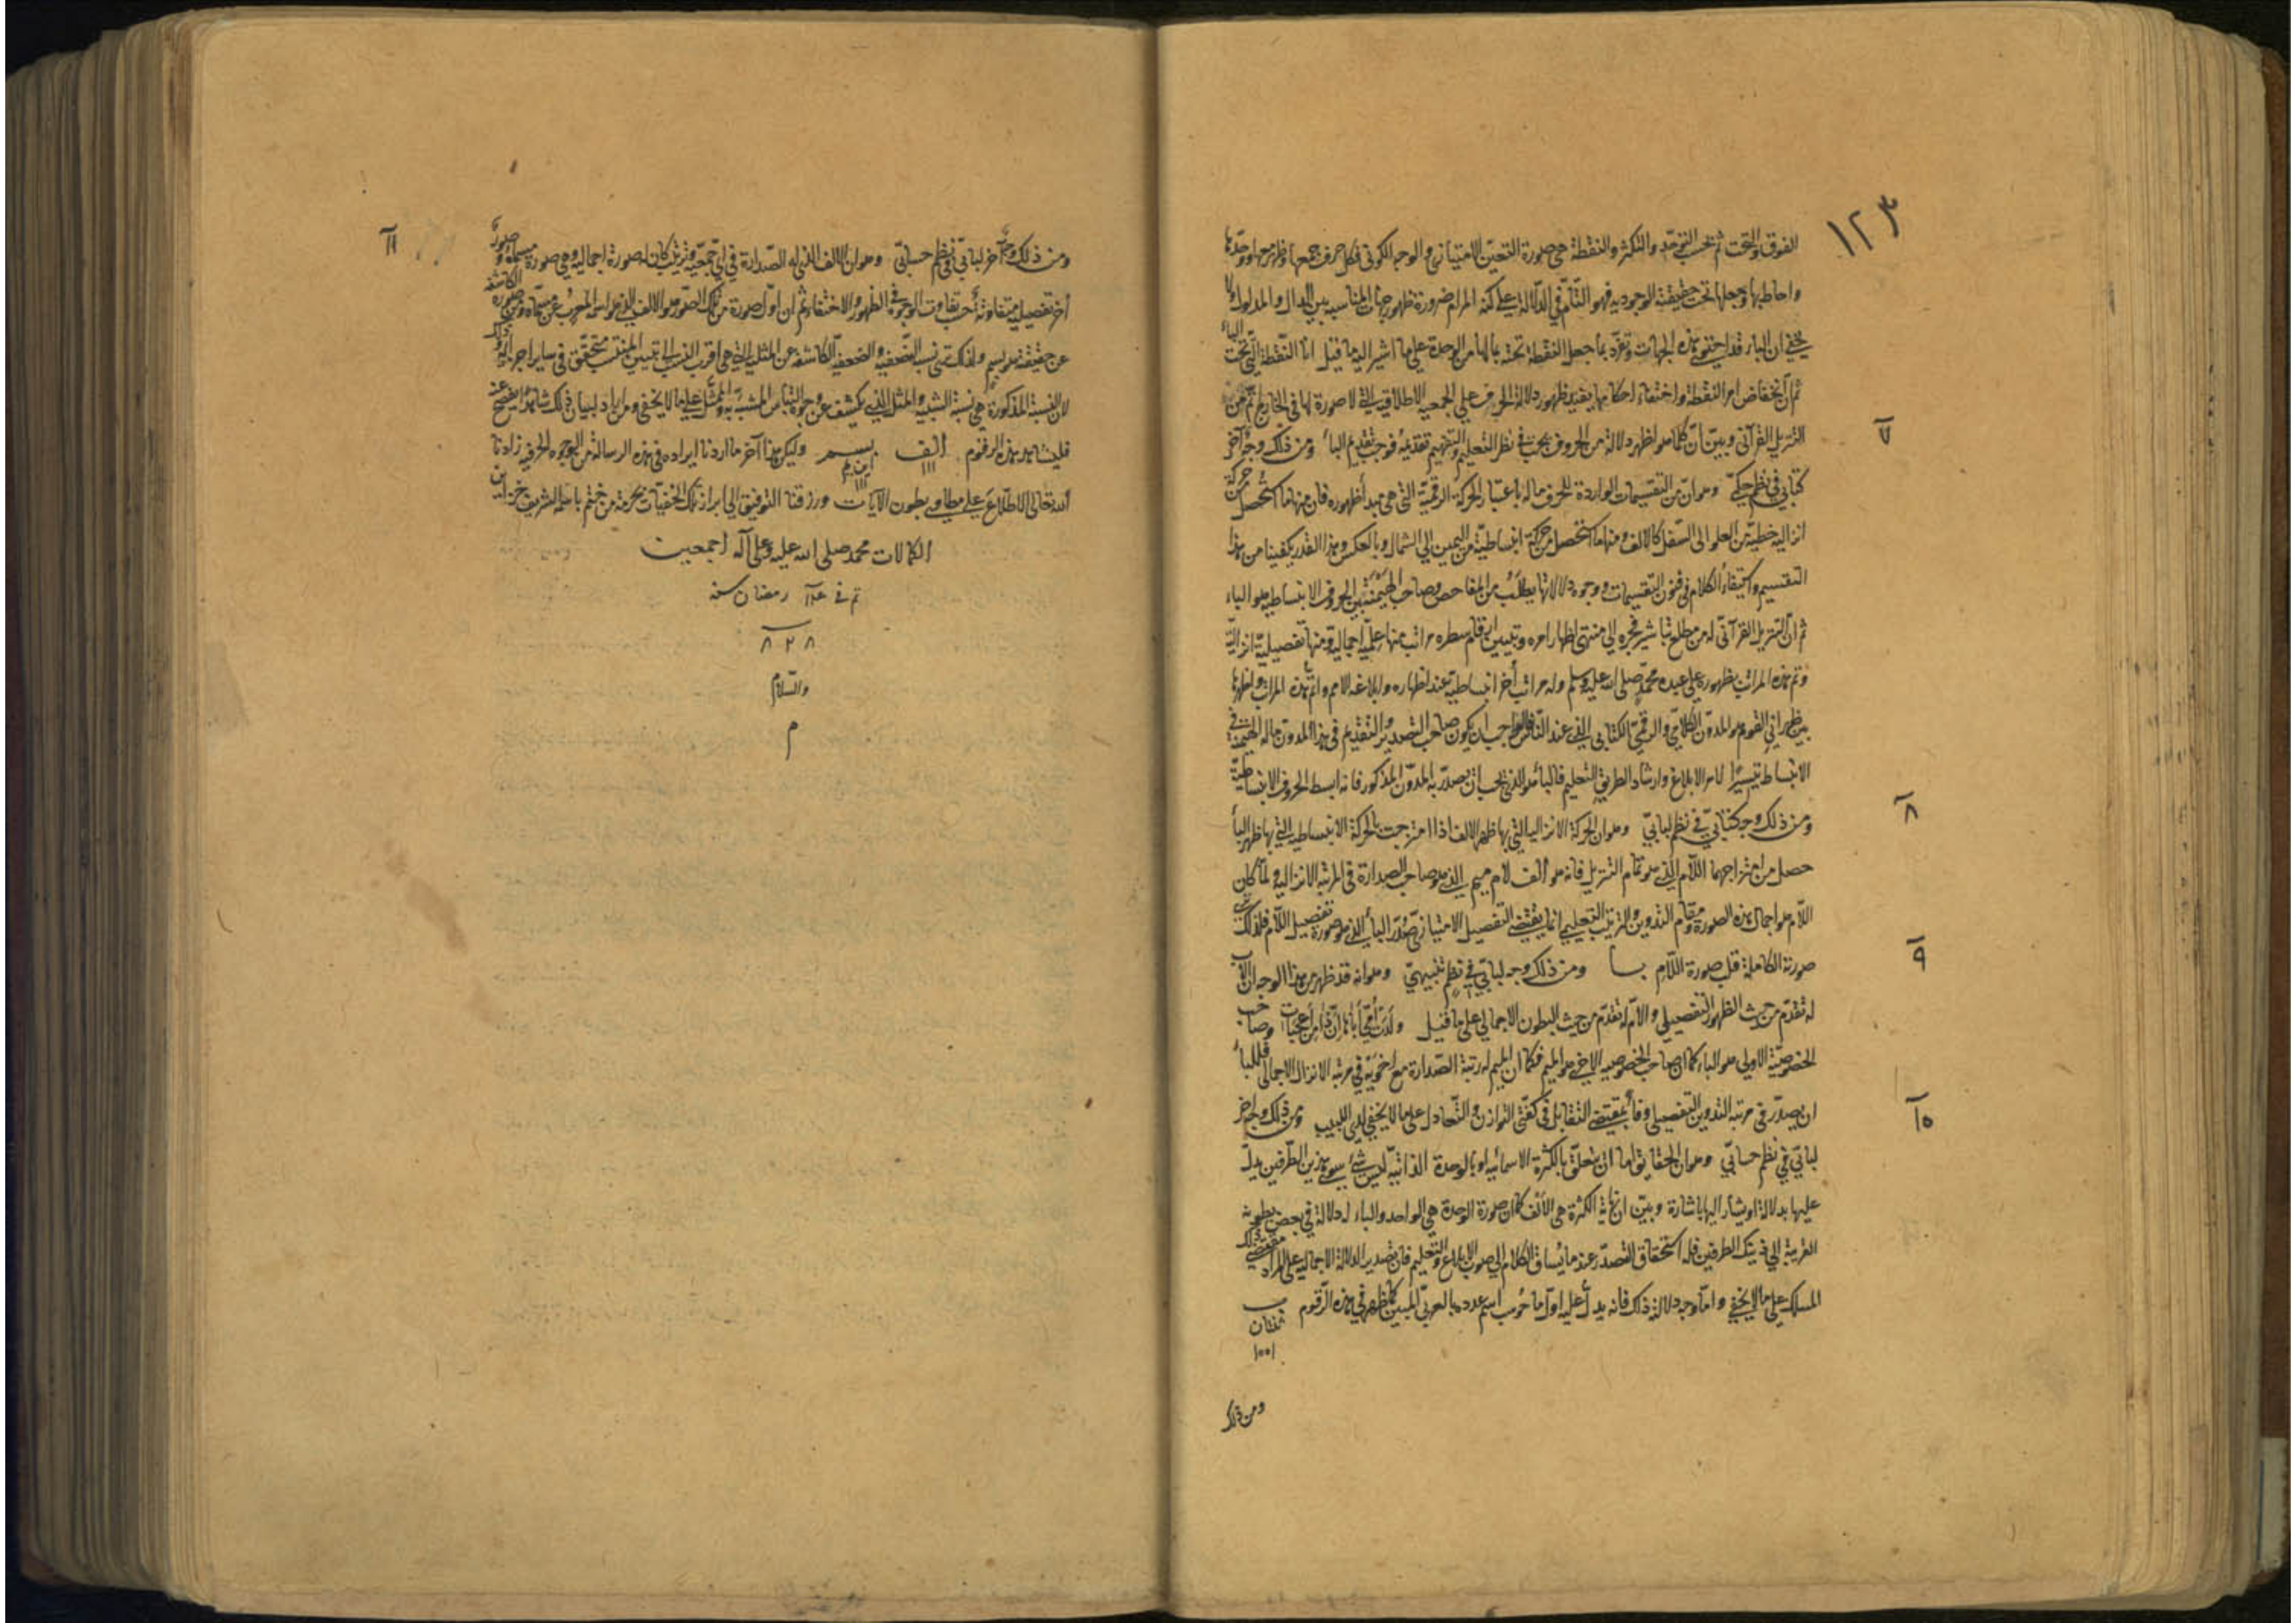 ١٢٣
الفوق والتحت ثم بحسب التوحد والتكثر والنقطة هي صورة التعين الامتيازي والوجه الكوني فكل حرف جمعها وظهر معها ووحدها
واحاط بها وجعلها تحت حقيقته الوجوديه فهو التام في الدلالة على كنه المرام ضرورة ظهور جهات المناسبه بين الدال والمدلول ولا
يخفى ان الباء قد احتوى هذه الجهات وتفرد بما جعل النقطة تحته بما لها من الوحدة على ما اشير اليه ما قيل انا النقطة التي تحت الباء
ثم ان انخفاض امر النقطة واختفاء احكامها يفيد ظهور دلالة الحرف على الجمعيه الاطلاقيه التي لا صورة لها في الخارج اتم من
التنزيل القرآني وبين ان كلما هو اظهر دلالة من الحروف يجب في نظر التعليم والتفهيم تقديمه فوجب تقديم الباء ومن ذلك وجه آخر
٧
كتابي في نظم حكمي وهو ان من التقسيمات الواردة للحرف ماله باعتبار الحركة الرقمية التي هي مبدأ ظهوره فان منها ما استحصل من حركة
انزاليه خطية من العلو الى السفل كالالف ومنها ما استحصل من حركة انبساطية من اليمين الى الشمال وبالعكس وهذا القدر يكفينا من هذا
التقسيم واستيفاء الكلام في فنون التقسيمات ووجوه دلالاتها يطلب من المفاحص وصاحب الهيمنة من الحروف الانبساطيه هو الباء
ثم ان التنزيل القرآني له من مطلع تباشير فجره الى منتهى اظهار امره وتبيين ارقام سطره مراتب منها علمية اجماليه ومنها تفصيلية انزالية
وتم هذه المراتب بظهوره على عبده محمد صلى الله عليه وسلم وله مراتب أخر انبساطية عند اظهاره وابلاغه الامم واتم هذه المراتب واظهرها
بين ظهراني القوم هو المدون الكلامي والرقمي الكتابي الذي عند الناس فالواجب ان يكون صاحب التصدير والتقديم في هذا المدون ماله الهيمنة في
الانبساط تيسيرا لامر الابلاغ وارشادا لطريق التعليم فالباء هو الذي يجب ان يصدر به المدون المذكور فانه ابسط الحروف الانبساطية
ومن ذلك وجه كتابي في نظم لبابي وهو ان الحركة الانزاليه التي بها ظهر الالف اذا امتزجت بالحركة الانبساطيه التي بها ظهر الباء
٨
حصل من امتزاجهما اللام الذي هو تمام التنزيل فانه هو ألف لام ميم الذي هو صاحب الصدارة في المرتبه الانزاليه ولما كان
اللام هو اجمال هذه الصورة ومقام التدوين والترتيب التعليمي انما يقتضي التفصيل الامتيازي صدر الباء الذي هو صورة تفصيل اللام فلذلك ترى
صورته الكاملة قلب صورة اللام بسا ومن ذلك وجه لبابي في نظم تنبيهي وهو انه قد ظهر من هذا الوجه ان الاب
٩
له تقدم من حيث الظهور التفصيلي والام له تقدم من حيث البطون الاجمالي على ما قيل ولدت أمي أباها ان ذا من أعجبات وصاحب
الخصوصية الاولى هو الباء كما ان صاحب الخصوصيه الاخرى هو الميم فكما ان الميم له رتبة الصدارة مع اخويه في مرتبه الانزال الاجمالي فللباء
ان يصدر في مرتبه التدوين التفصيلي وفاء بمقتضى التقابل في كفتي التوازن والتعادل على ما لا يخفى لدى اللبيب ومن ذلك وجه اخر
١٠
لبابي في نظم حسابي وهو ان الحقايق اما ان يتعلق بالكثرة الاسمائيه او بالوحدة الذاتية ليس شيء سوى هذين الطرفين يدل
عليها بدلالة او يشار اليها باشارة وبين ان غاية الكثرة هي الالف كما ان صورة الوحدة هي الواحد والباء له دلالة في بعض بطونه
القريبة الى ذينك الطرفين فله استحقاق التصدر عند ما يساق الكلام الى صوب الابلاغ والتعليم فان تصدير الدلالة الاجماليه على المراد مقتضى ذلك
المسلك على ما لا يخفى واما وجه دلالته ذلك فانه يدل عليه اول ما حوسب اسم عدده بالعربي المبين كما ظهر في هذه الرقوم ب
ثنتان
١٠٠١
ومن ذلك
ومن ذلك وجه آخر لبابي في نظم حسابي وهو ان الالف الذي له الصدارة في اي جمعية وتنزيل كان له صورة اجماليه وهي صورة مسماه وصورة
١١
أخر تفصيلي متفاوتة بحسب تفاوت الوجوه في الظهور والاختفاء ثم ان اول صورة من تلك الصور هو الالف الذي هو اسم المعرب عن مسماه وعن صورة الكاشفه
عن حقيقته هو بسم ولذلك تسمى نسب التضعيفيه والضعفية الكاشفة عن المثلية التي هي اقرب النسب الى تبيين المنتسب متحقق في ساير اجزائه وذلك
لان النسبة المذكورة هي نسبة الشبيه والمثل الذي يكشف عن وجوه التباس المشبه به والممثل عليه ما لا يخفى ومن اراد لبيان ذلك شاهدا يفصح عنه
فليشاهد هذه الرقوم الف بسم وليكن هذا آخر ما اردنا ايراده في هذه الرسالة من الوجوه الحرفيه زادنا
١١١
١١١
الله تعالى الاطلاع على مطاوي بطون الآيات ورزقنا التوفيق الى ابراز تلك الخفيات بحرمة من ختم باسمه الشريف خزائن
الكمالات محمد صلى الله عليه وعلى آله اجمعين
تم في رمضان سنه
٨٢٨
والسلام
م